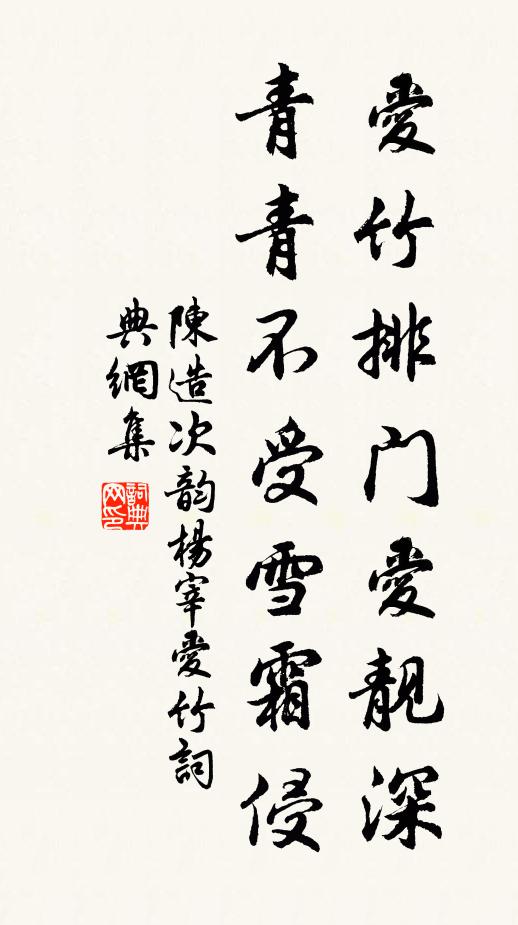 愛竹排门愛靚深
青青不受雪霜侵
陳造次韵楊宰愛竹詞
典網集
詞典网印